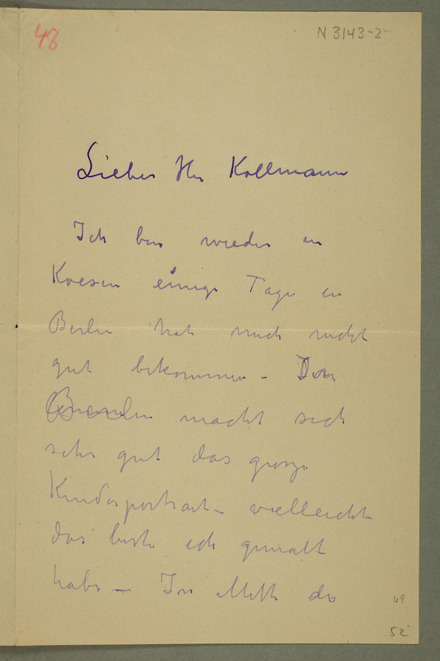 48
N 3143-2
Lieber Herr Kollmann
Ich bin wieder in
Kösen einige Tage in
Berlin hat mich nicht
gut bekommen –
macht sich
sehr gut das grosse
Kinderportrait – vielleicht
das beste ich gemalt
habe – In Mitte des
49
52